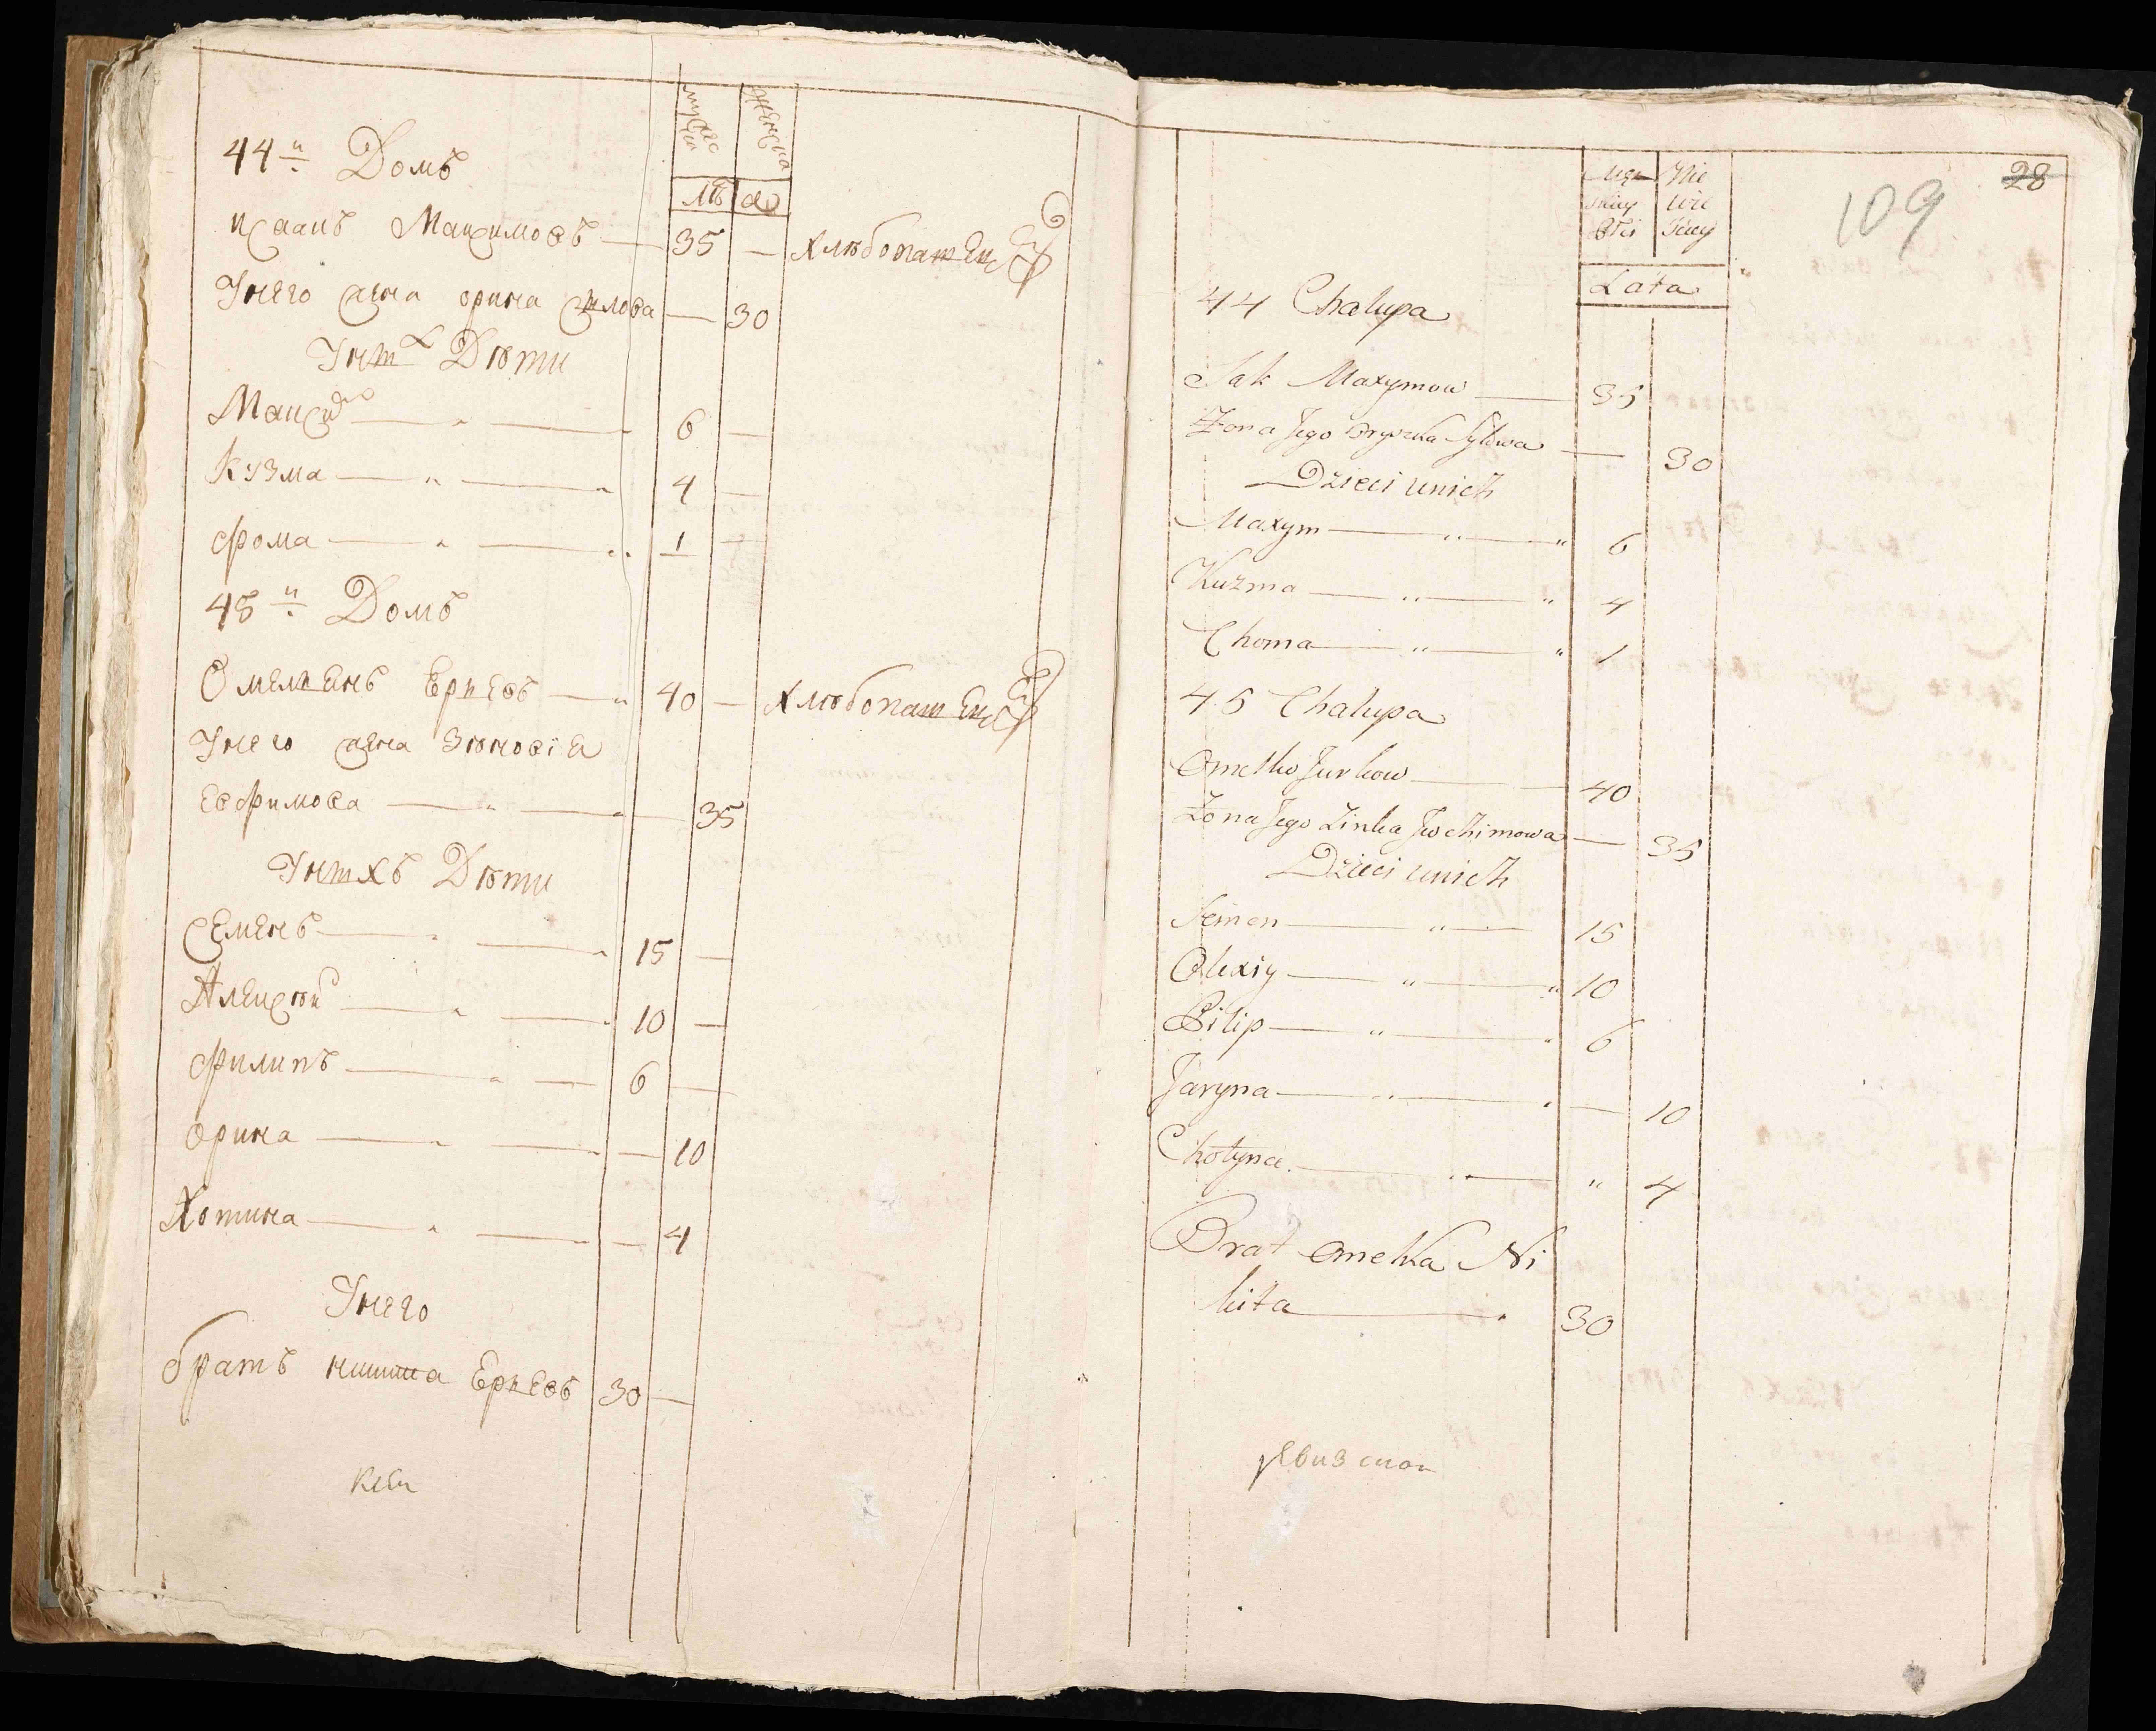 мужеска женска
лѣта
44й Домъ
исаакъ Максимовъ — 35 — хлѣбопашец
У него жена орина силова — 30
У них Дѣти
Максим — „ — 6 —
Кузма — „ — 4 —
фома — „ — 1 —
45й Домъ
Омелянъ Еркевъ — „ 40 — хлѣбопашец
У него жена Зѣновія
Евфимова — „ — 35
У нихъ Дѣти
Семенъ — „ — 15 —
Алексѣй — „ — 10 —
филипъ — „ — 6 —
орина — „ — 10
Хотина — „ — 4
У него
братъ никита Еркевъ 30 —
28
109
Męz Nie
skiey wie
Płci sciey
Lata
44 Chalupa
Sak Maxymow — 35
Żona Jego Oryszka Sylowa — 30
Dzieci unich
Maxym — „ — „ 6
Kuzma — „ — „ 4
Choma — „ — „ 1
45 Chalupa
Omelko Jurkow — 40
Żona Jego Zinka Jwchimowa — 35
Dzieci unich
Semen — „ — 15
Olexiy — „ — „ 10
Pilip — „ — „ 6
Jaryna — „ — „ — 10
Chotyna — „ — „ 4
Brat Omelka Ni
kita — „ 30
ревизској